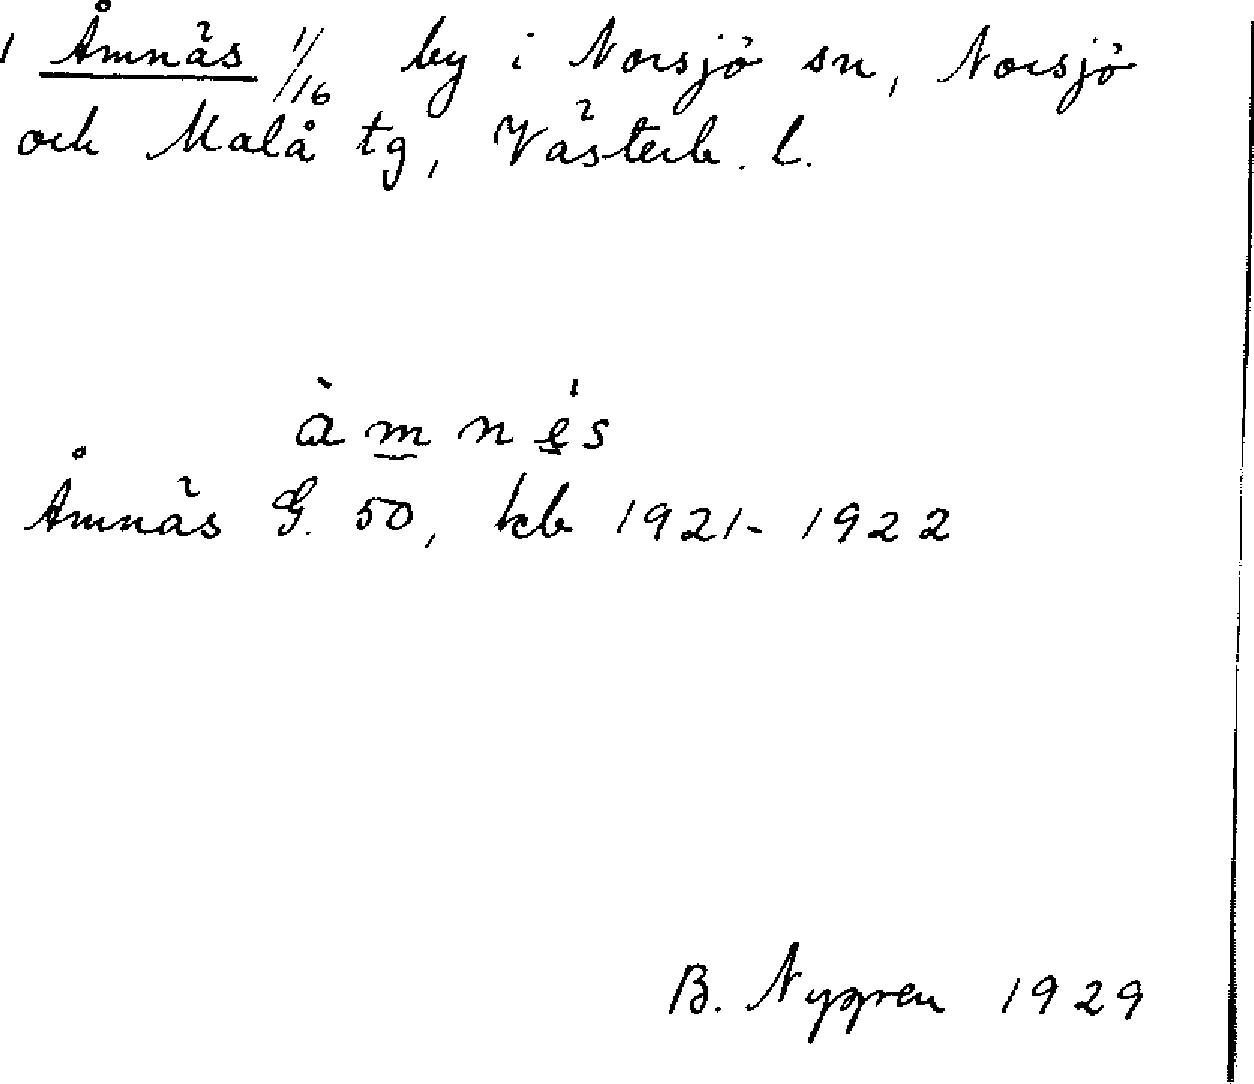 1 Åmnäs 1/16 by i Norsjö sn, Norsjö
och Malå tg, Västerb. l.
àmnés
Åmnäs G. 50, kb 1921-1922
B. Nygren 1929